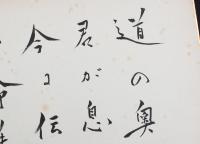 道の奥
君が息
今に伝